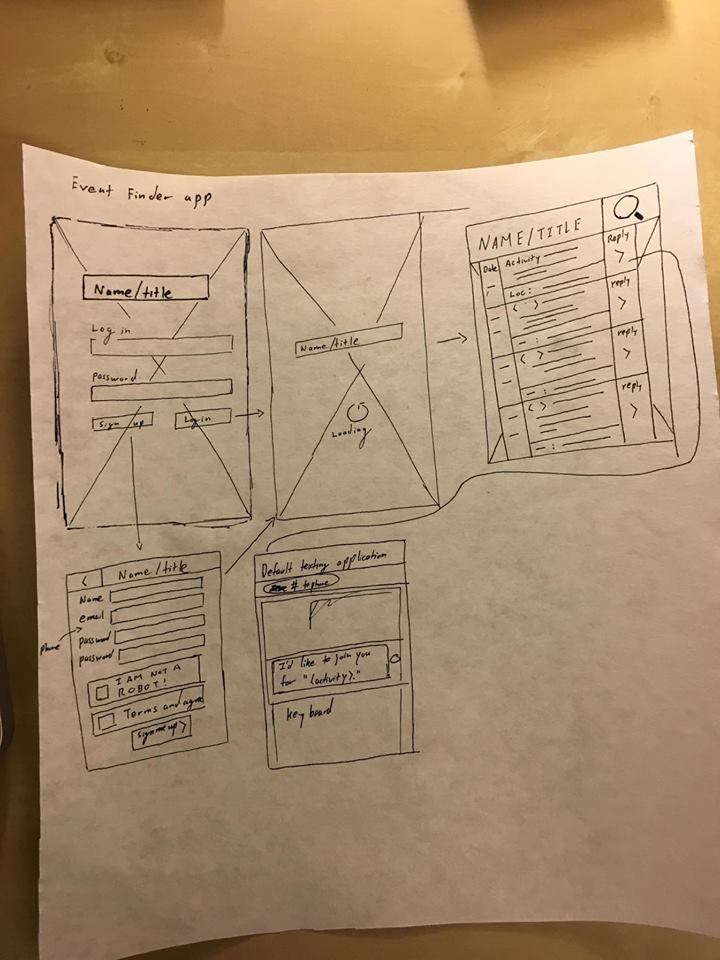 Event Finder app
Name/title
Log in
password
Sign up
Log in
Name/title
Loading
NAME/TITLE
Date
Activity
Reply
Loc:
reply
reply
reply
Name/title
Name
email
phone
password
password
I AM NOT A
ROBOT!
Terms and agre
sign me up >
Default texting application
# to phone
I'd like to join you
for "(activity)."
keyboard